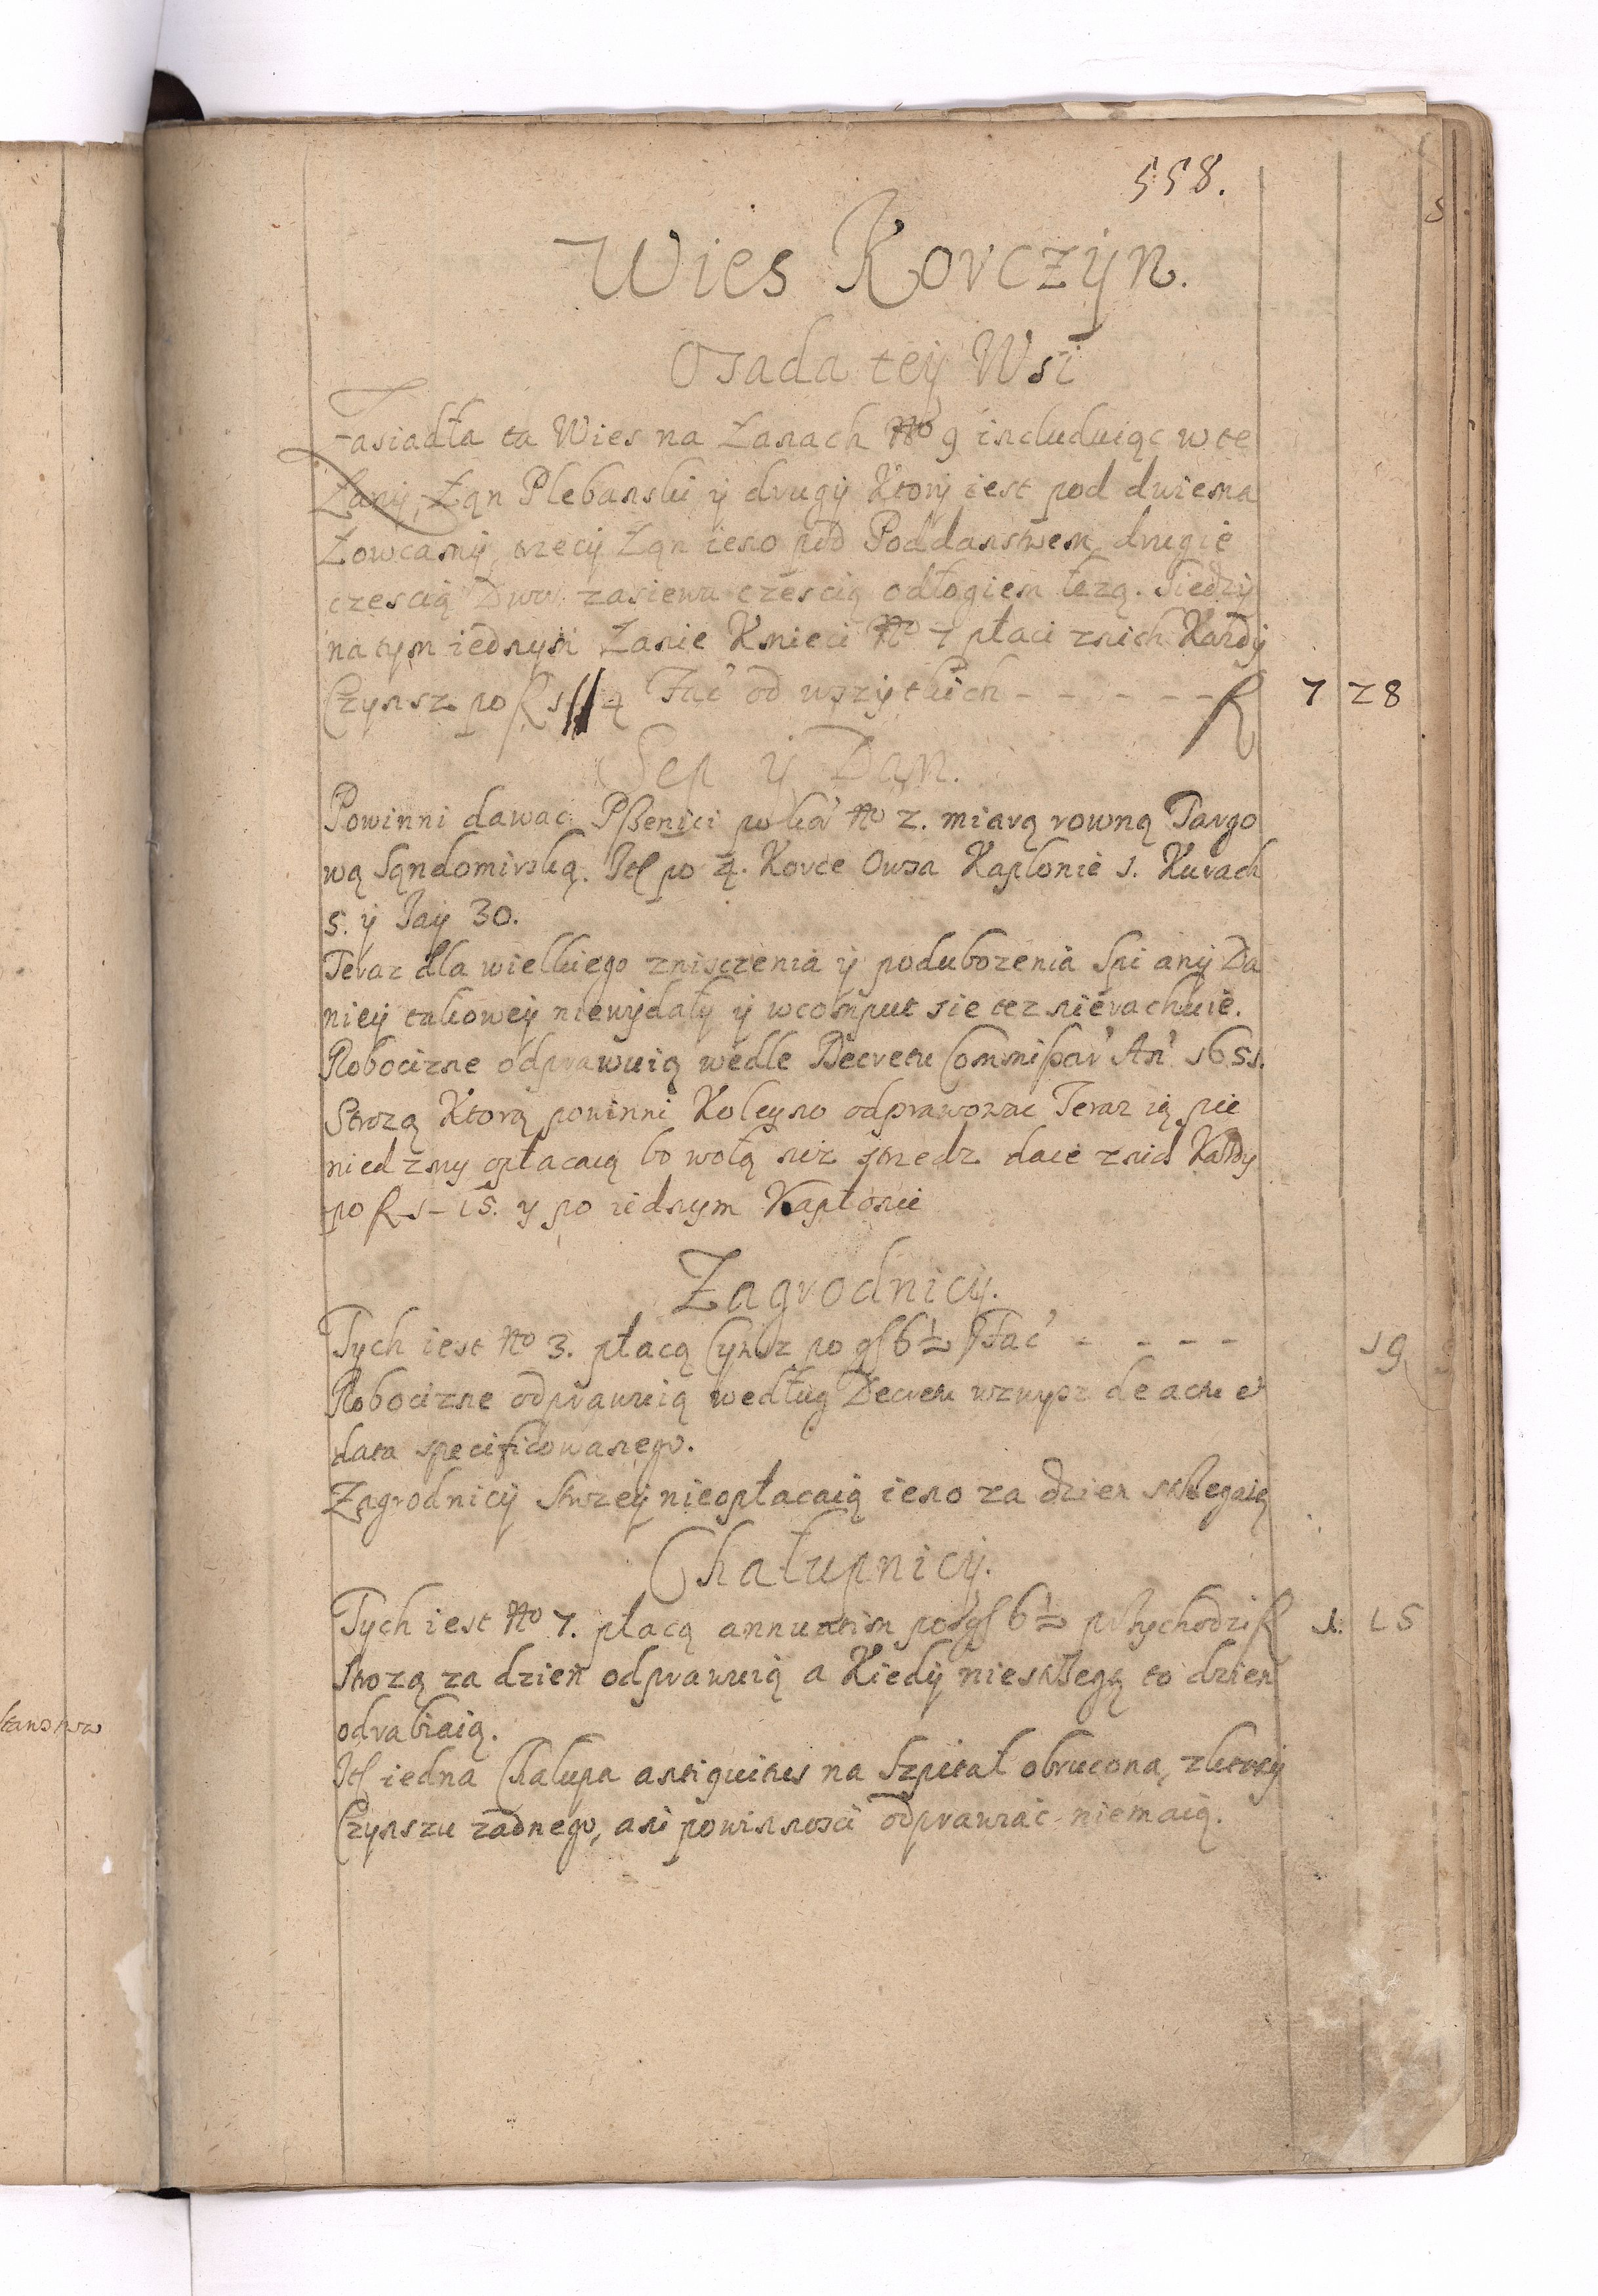 558.
Wies Korczÿn.
Osada teÿ Wsi
Zasiadła ta Wies na Łanach No 9 includuiąc w te
Łanÿ, Łąn Plebanski ÿ drugÿ Ktorÿ iest pod dwiema
Łowcamÿ, trzecÿ Łąn ieno pod Poddanstwem drugie
czescią Dwu zasiewa czescią odłogiem lezą. Siedzÿ
na tÿm iednÿm Łanie Kmieci No 7 płaci znich Kazdÿ
Czynsz po f 1//4 Fac od wszÿtkich - - - - - f 7 28
Sep ÿ Dan.
Powinni dawac Pszenici po kor No 2. miarą rowną Targo
wą Sąndomirską. It po 4. Korce Owsa Kaplonie 1. Kurach
5. ÿ Jaÿ 30.
Teraz dla wielkiego znisczenia ÿ podubozenia Spi anÿ Da
nieÿ takoweÿ niewÿdałÿ ÿ wcomput sie tez nierachuie.
Robocizne odprawuią wedle Decretu Commissar An 1651.
Strozą Ktorą powinni Koleyno odprawowac Teraz ią pie
niedzmy opłacaią bo wolą niz strzedz daie znich Kazdy
po f 1-15. y po iednym Kapłonie
Zagrodnicÿ.
Tych iest No 3. płacą Cynsz po gr 6½ Fac - - - - 19
Robocizne odprawuią według Decretu wzwysz de actu et
data specificowanego.
Zagrodnicÿ Strozeÿ nieopłacaią ieno za dzien strzegaią
Chałupnicÿ.
Tych iest No 7. płacą annuatim po gr 6½ przychodzi f 1. 15
Strozą za dzien odprawuią a Kiedÿ niestrzegą to dzien
odrabiaią.
It iedna Chalupa antiquitus na Szpital obrucona, zktorÿ
Czynszu zadnego, ani powinnosci odprawiac niemaią.